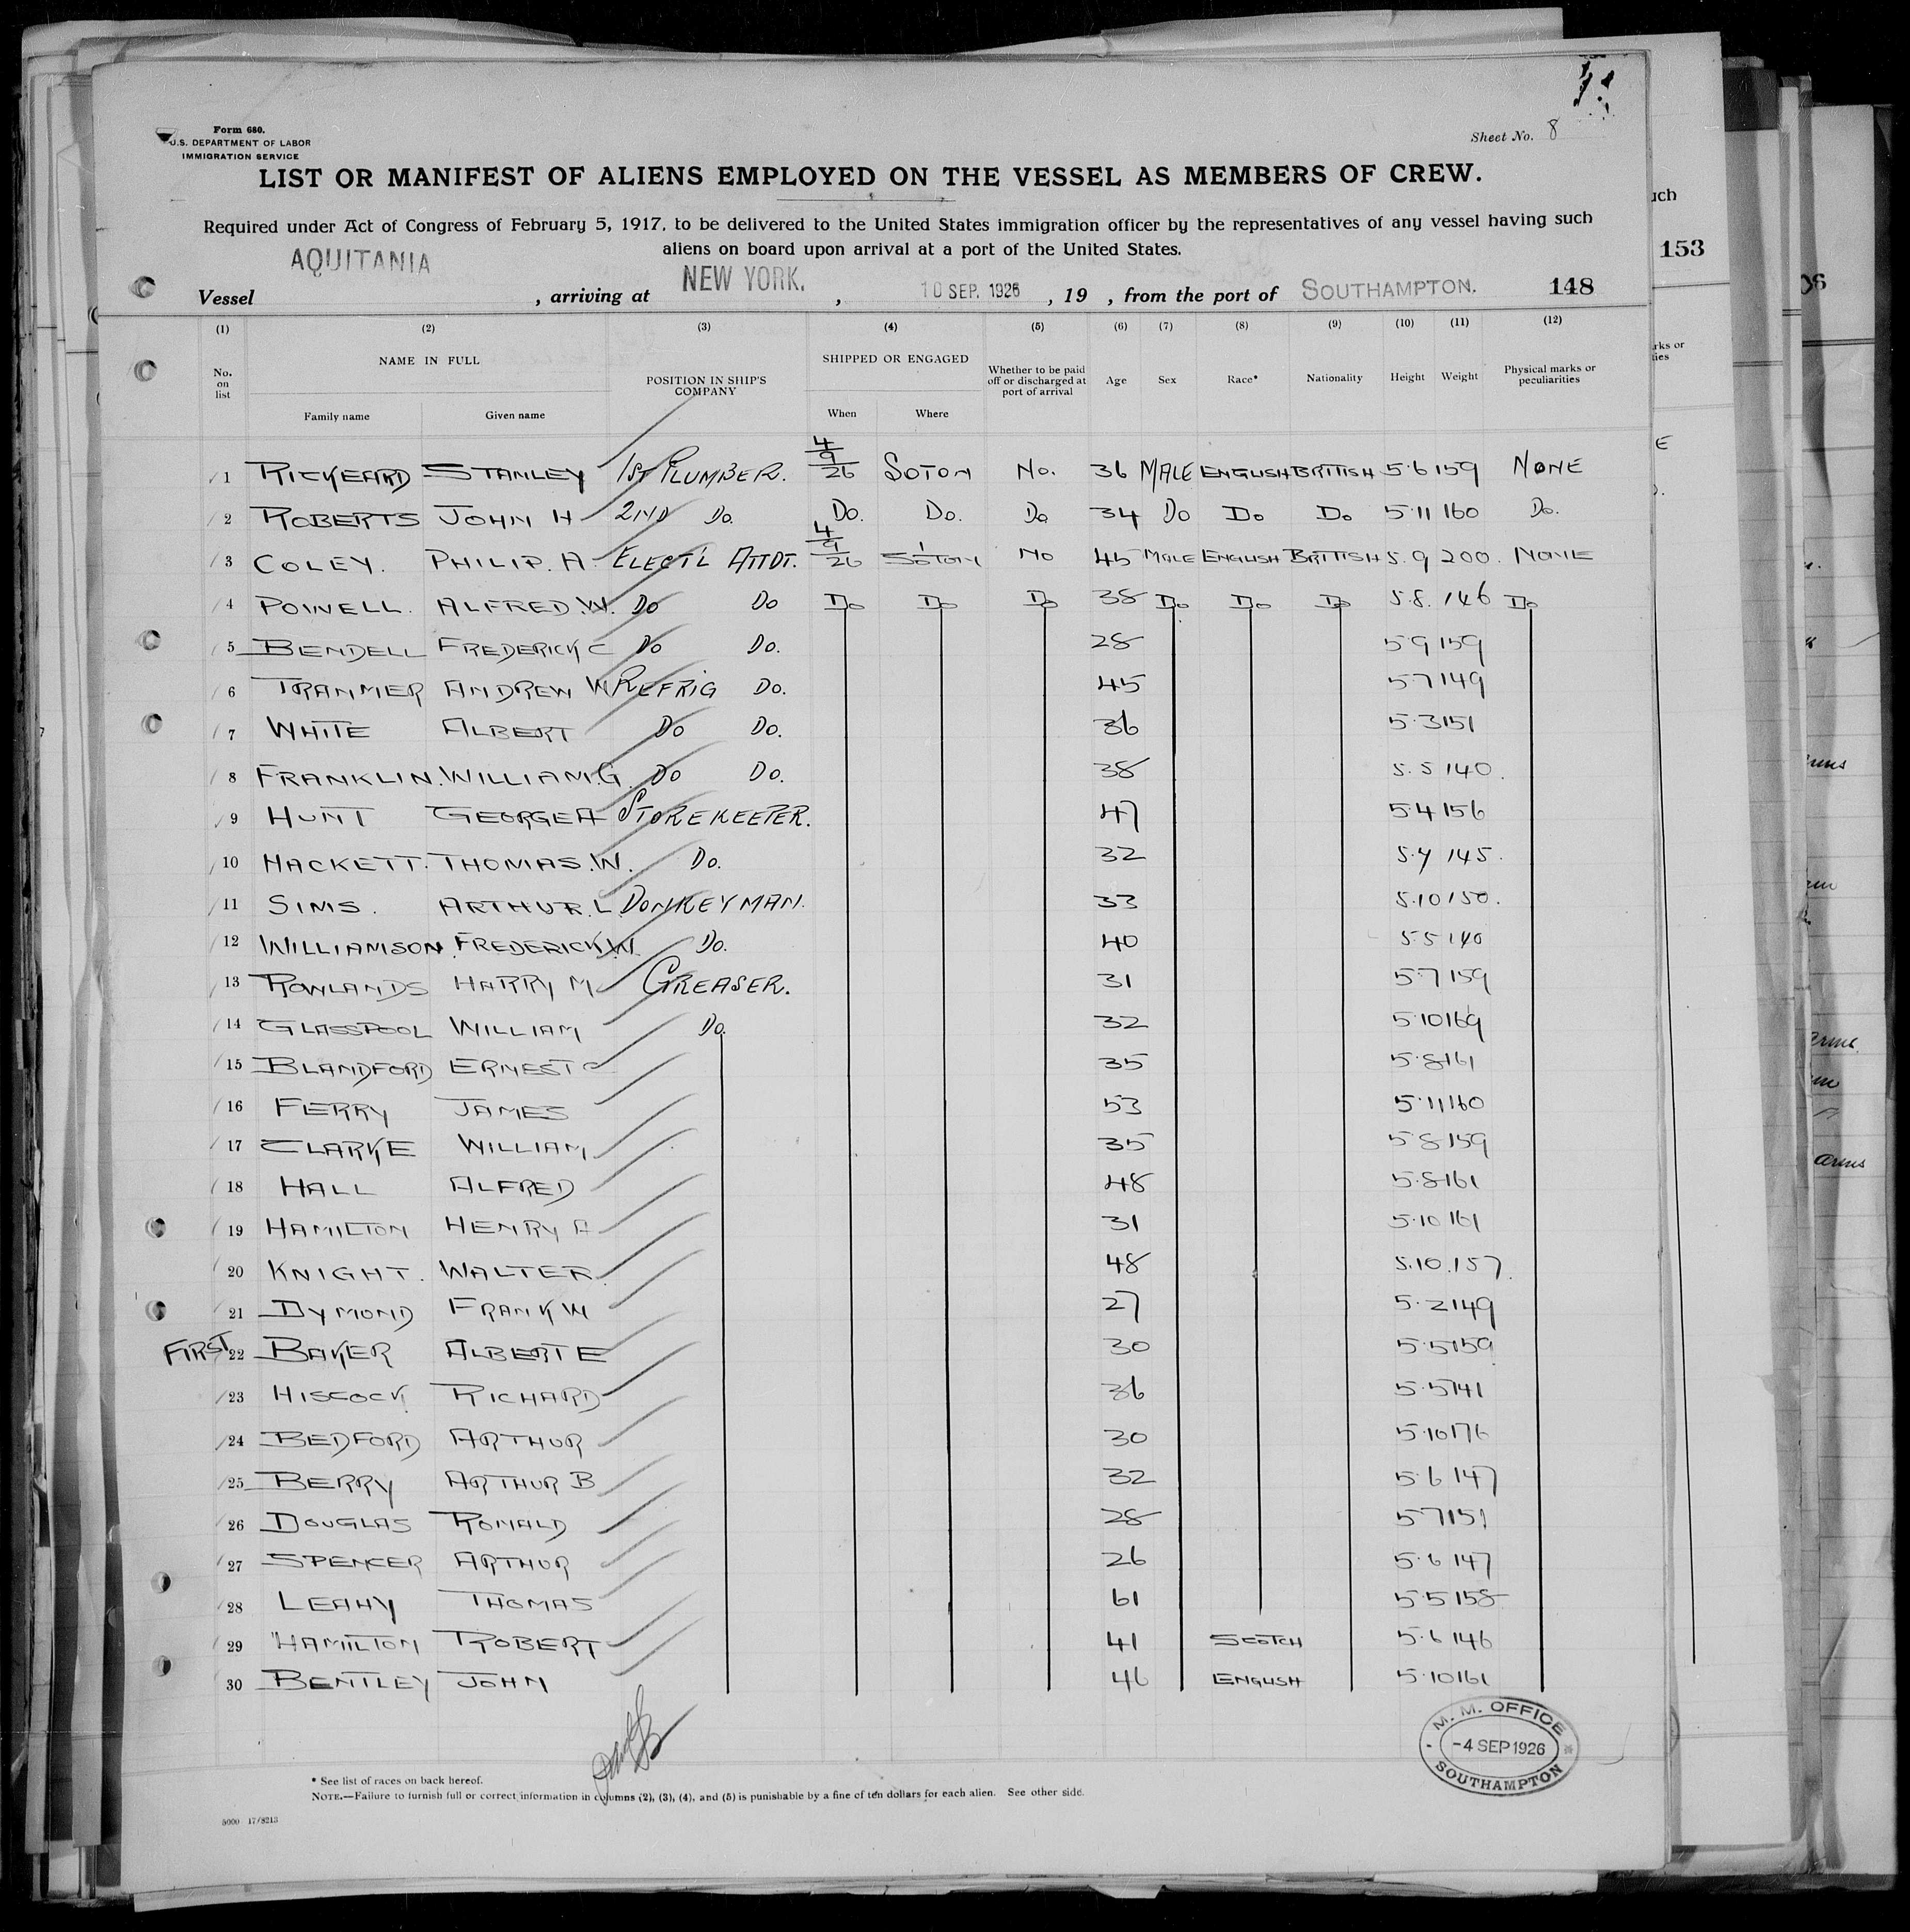 Form 680.
U.S. DEPARTMENT OF LABOR
IMMIGRATION SERVICE
Sheet No. 8
LIST OR MANIFEST OF ALIENS EMPLOYED ON THE VESSEL AS MEMBERS OF CREW.
Required under Act of Congress of February 5, 1917, to be delivered to the United States immigration officer by the representatives of any vessel having such
aliens on board upon arrival at a port of the United States.
Vessel AQUITANIA, arriving at NEW YORK., 10 SEP. 1926, 19 , from the port of SOUTHAMPTON. 148
(1) (2) (3) (4) (5) (6) (7) (8) (9) (10) (11) (12)
No. on list NAME IN FULL POSITION IN SHIP'S COMPANY SHIPPED OR ENGAGED Whether to be paid off or discharged at port of arrival Age Sex Race* Nationality Height Weight Physical marks or peculiarities
Family name Given name When Where
1 RICKEARD STANLEY 1ST PLUMBER. 4/9/26 SOTON No. 36 MALE ENGLISH BRITISH 5.6 159 NONE
2 ROBERTS JOHN H 2ND Do. Do. Do. Do 34 Do Do Do 5.11 160 Do.
3 COLEY. PHILIP. A. ELECT'L ATTDT. 4/9/26 S'OTON No 45 MALE ENGLISH BRITISH 5.9 200. NONE
4 POWELL. ALFRED.W. Do Do Do Do Do 38 Do Do Do 5.8. 146 Do
5 BENDELL FREDERICK C Do Do. 28 5.9 159
6 TRANMER ANDREW W REFRIG Do. 45 5.7 149
7 WHITE ALBERT Do Do. 36 5.3 151
8 FRANKLIN. WILLIAM.G. Do Do. 38 5.5 140.
9 HUNT GEORGE A STOREKEEPER. 47 5.4 156
10 HACKETT. THOMAS.W. Do. 32 5.7 145.
11 SIMS. ARTHUR.L. DONKEYMAN. 33 5.10 150.
12 WILLIAMSON. FREDERICK.W. Do. 40 5.5 140
13 ROWLANDS HARRY M GREASER. 31 5.7 159
14 GLASSPOOL WILLIAM Do. 32 5.10 169
15 BLANDFORD ERNEST C 35 5.8 161
16 FERRY JAMES 53 5.11 160
17 CLARKE WILLIAM 35 5.8 159
18 HALL ALFRED 48 5.8 161
19 HAMILTON HENRY A 31 5.10 161
20 KNIGHT. WALTER. 48 5.10.157.
21 DYMOND FRANK W 27 5.2 149
FIRST 22 BAKER ALBERT E 30 5.5 159
23 HISCOCK RICHARD 36 5.5 141
24 BEDFORD ARTHUR 30 5.10 176
25 BERRY ARTHUR B 32 5.6 147
26 DOUGLAS RONALD 28 5.7 151
27 SPENCER ARTHUR 26 5.6 147
28 LEAHY THOMAS 61 5.5 158
29 HAMILTON ROBERT 41 SCOTCH 5.6 146
30 BENTLEY JOHN 46 ENGLISH 5.10 161
M. M. OFFICE
-4 SEP 1926
SOUTHAMPTON
* See list of races on back hereof.
NOTE.—Failure to furnish full or correct information in columns (2), (3), (4), and (5) is punishable by a fine of ten dollars for each alien. See other side.
5000 17/8213
153
arms